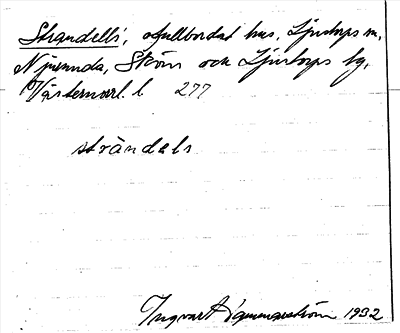 Strandells, ofullbordat hus, Ljustorps sn,
Njurunda, Sköns och Ljustorps tg,
Västernorrl. l 277
strändels
Ingvar Hammarström 1932